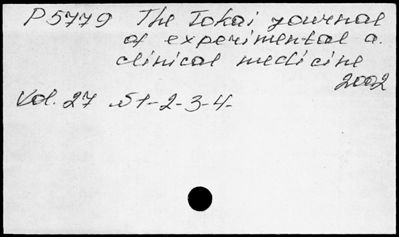 P5779 The Tokai journal
of experimental a.
clinical medicine
2002
Vol. 27 S1-2-3-4-